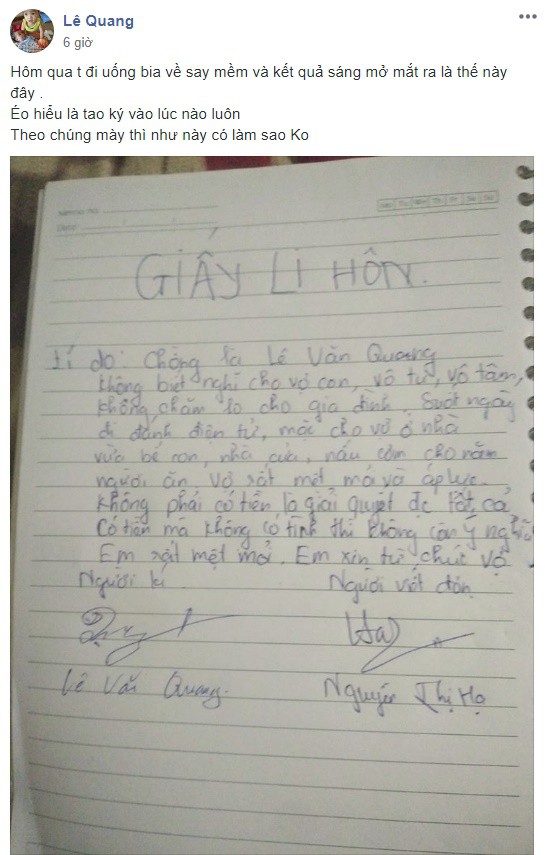 Lê Quang
6 giờ
Hôm qua t đi uống bia về say mềm và kết quả sáng mở mắt ra là thế này
đây .
Éo hiểu là tao ký vào lúc nào luôn
Theo chúng mày thì như này có làm sao Ko
Date:
GIẤY LI HÔN.
Lí do: Chồng là Lê Văn Quang
không biết nghĩ cho vợ con, vô tư, vô tâm,
không chăm lo cho gia đình. Suốt ngày
đi đánh điện tử, mặc cho vợ ở nhà
vừa bế con, nhà cửa, nấu cơm cho năm
người ăn. Vợ rất mệt mỏi và áp lực.
Không phải có tiền là giải quyết đc tất cả
Có tiền mà không có tình thì không còn ý nghĩa
Em rất mệt mỏi. Em xin từ chức vợ
Người kí Người viết đơn
Hạ
Lê Văn Quang. Nguyễn Thị Hạ